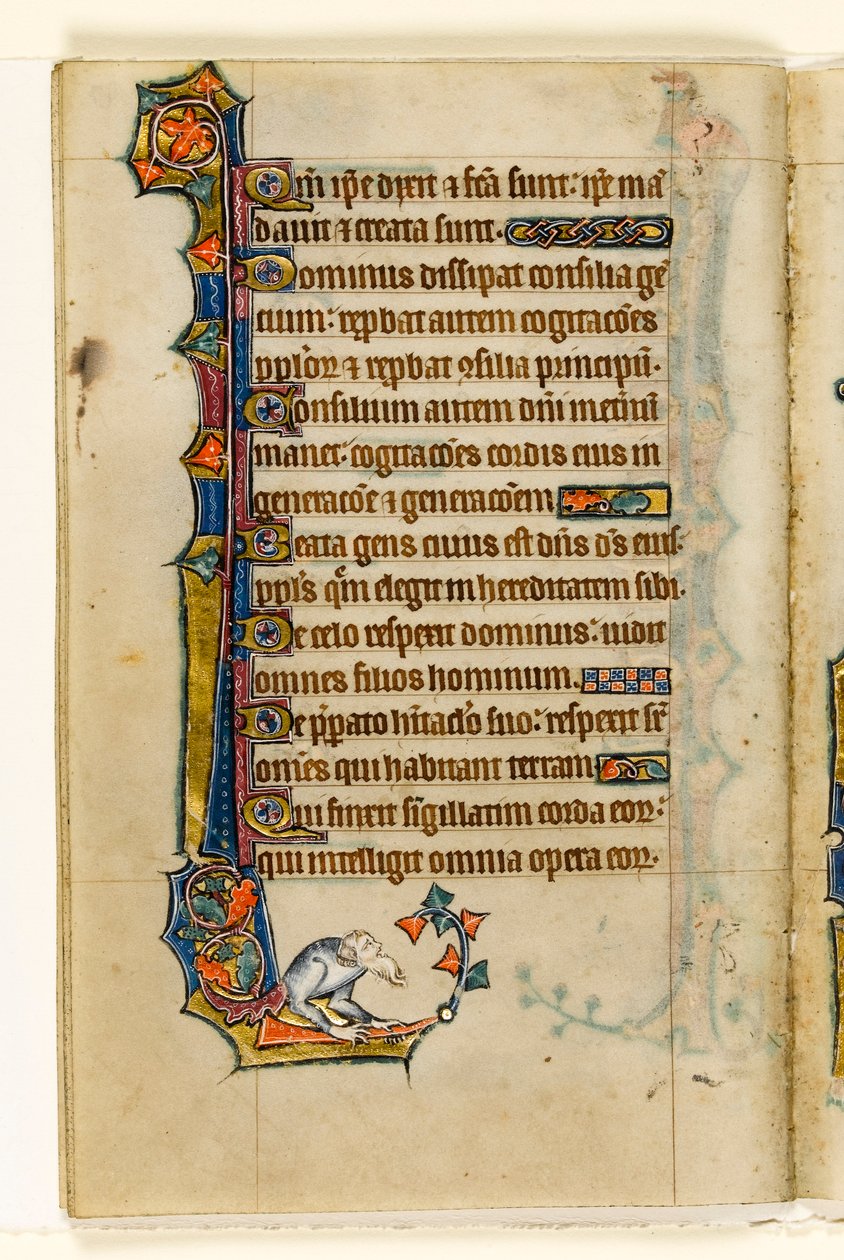 Qm̄ ip̄e dixit ⁊ fcā sunt: ip̄e mā
dauit ⁊ creata sunt.
Dominus dissipat consilia gē
cium: rep̱bat autem cogitacōes
pplōꝝ ⁊ rep̱bat ꝯsilia principū.
Consilium autem dn̄i in et̄nū
manet: cogitacōes cordis eius in
generacōe ⁊ generacōem
Beata gens cuius est dn̄s d̄s eius:
ppl̄s quē elegit in hereditatem sibi.
De celo respexit dominus: uidit
omnes filios hominum.
De p̄parato h̄itacl̄o suo: respexit sr̄
om̄es qui habitant terram
Qui finxit sīgillatim corda eoꝝ:
qui intelligit omnia opera eoꝝ.